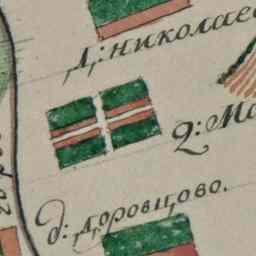 Д: николае
2: Ма
д: доровцово.